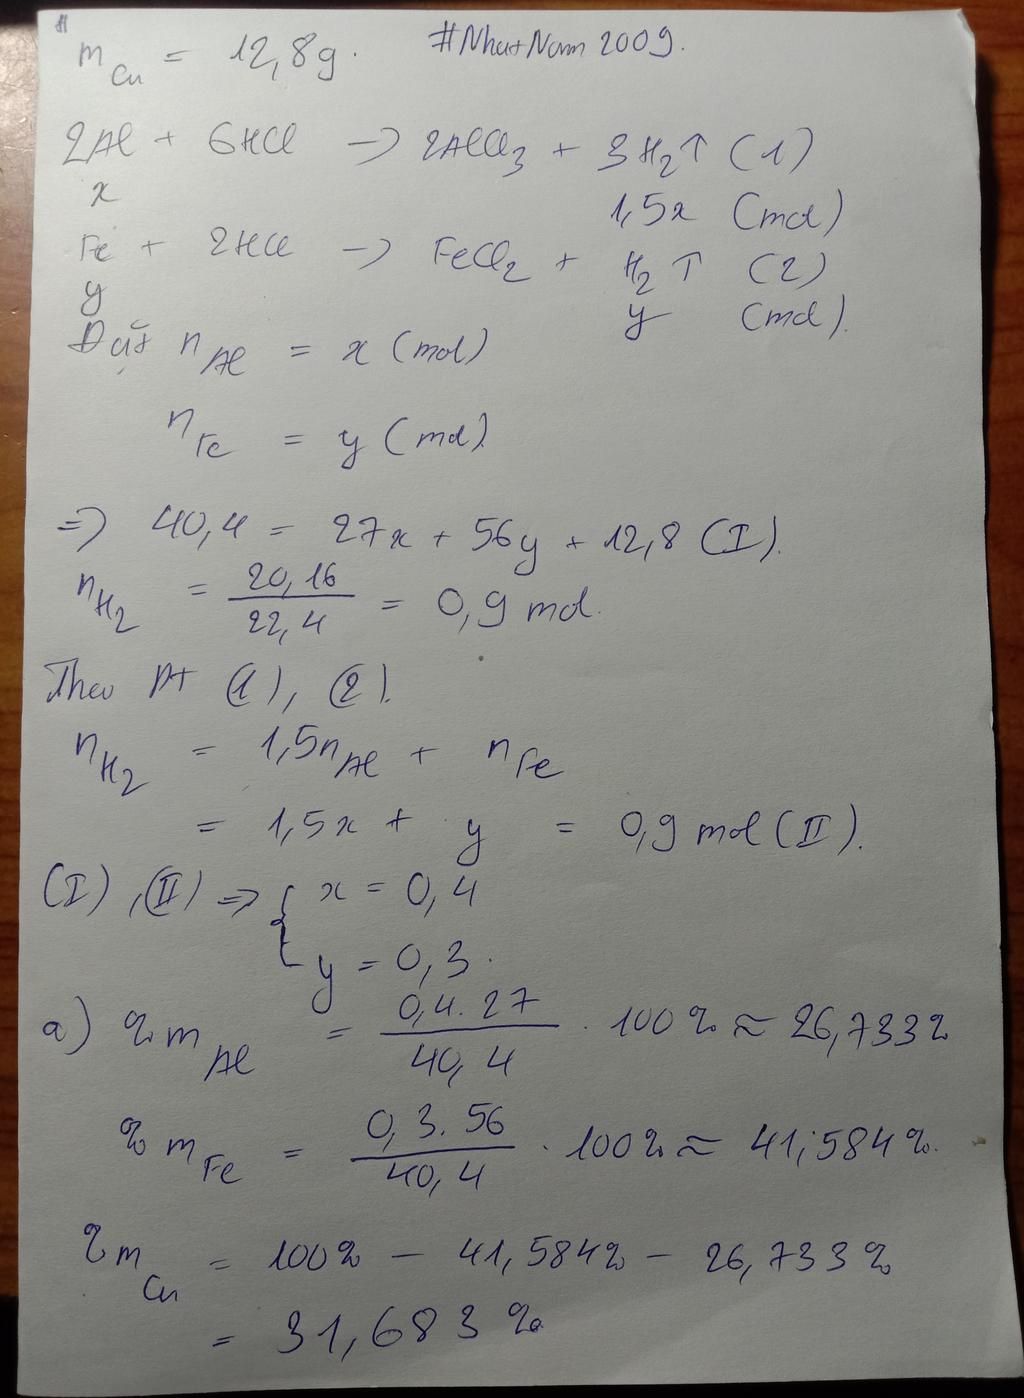 m Cu = 12,8g. #NhatNam2009.
2Al + 6HCl -> 2AlCl3 + 3H2↑ (1)
x 1,5x (mol)
Fe + 2HCl -> FeCl2 + H2↑ (2)
y y (mol).
Đặt nAl = x (mol)
nFe = y (mol)
=> 40,4 = 27x + 56y + 12,8 (I).
nH2 = 20,16 / 22,4 = 0,9 mol.
Theo PT (1), (2).
nH2 = 1,5nAl + nFe
= 1,5x + y = 0,9 mol (II).
(I), (II) => { x = 0,4
y = 0,3.
a) %mAl = 0,4.27 / 40,4 . 100% ≈ 26,733%
%mFe = 0,3.56 / 40,4 . 100% ≈ 41,584%.
%mCu = 100% - 41,584% - 26,733%
= 31,683%